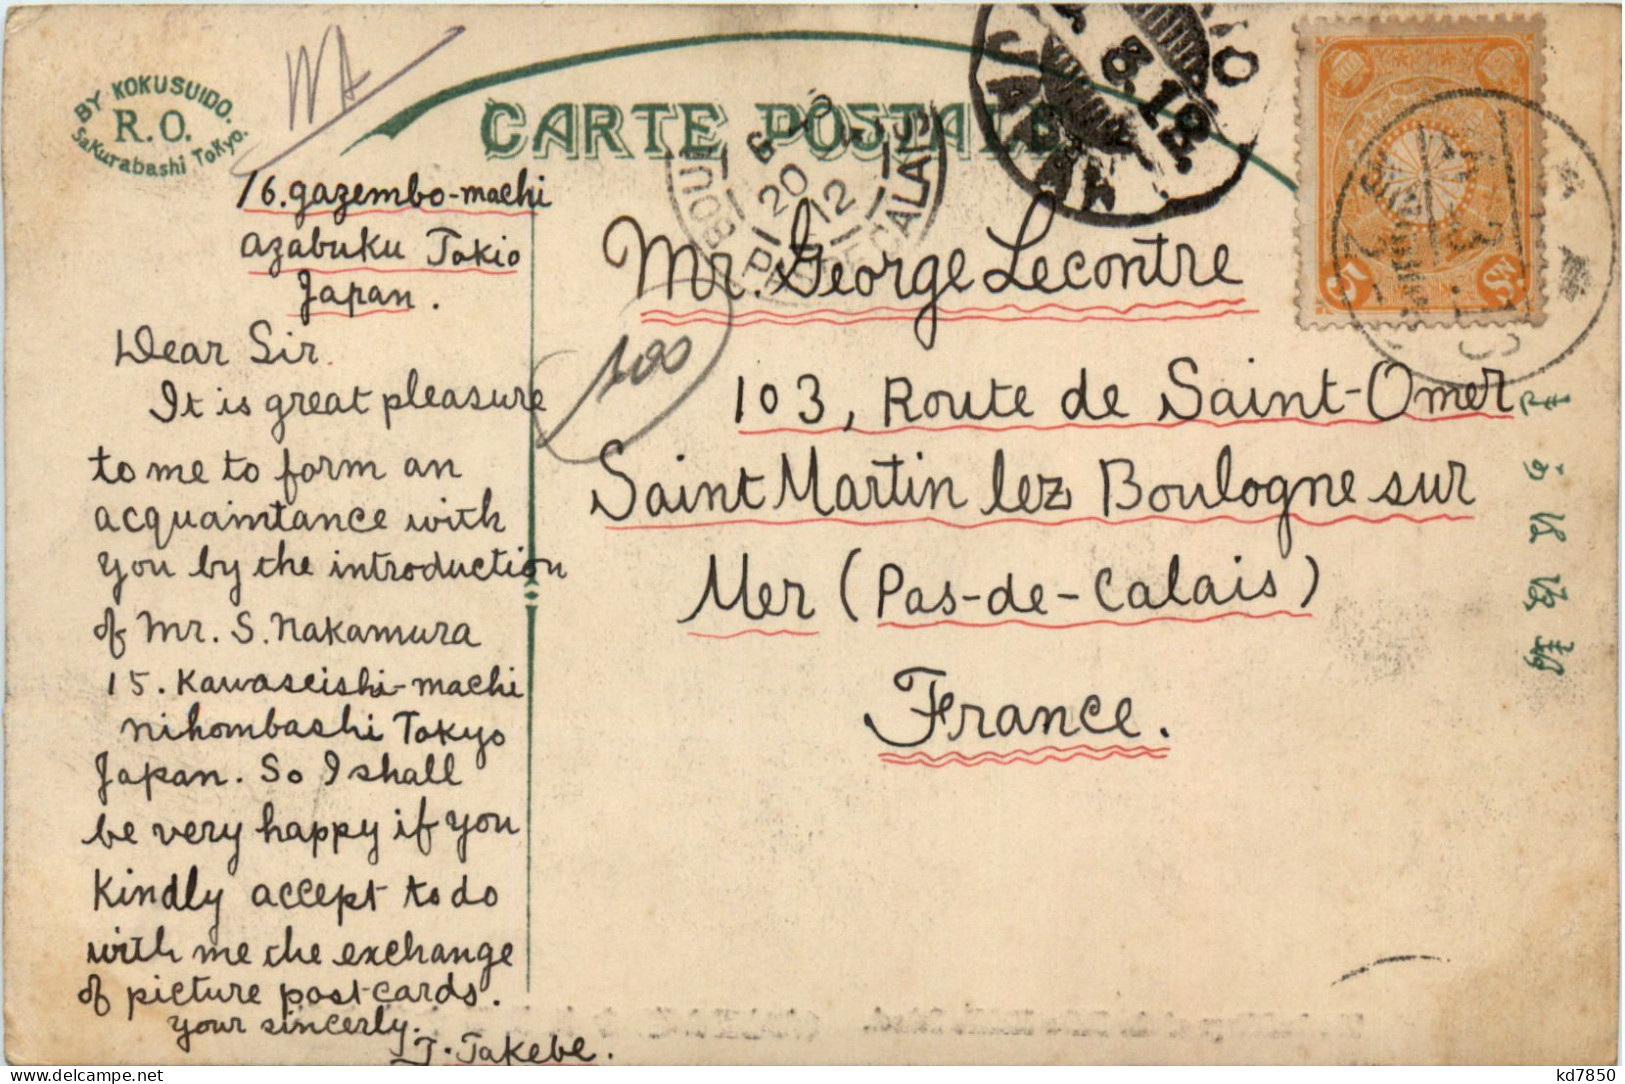 BY KOKUSUIDO.
R. O.
Sakurabashi Tokyo.
CARTE POSTALE
JAPAN
8.12.
20
12
PAS DE CALAIS
16. gazembo-machi
azabuku Tokio
Japan.
Dear Sir.
It is great pleasure
to me to form an
acquaintance with
you by the introduction
of Mr. S. Nakamura
15. Kawaseishi-machi
nihombashi Tokyo
Japan. So I shall
be very happy if you
kindly accept to do
with me the exchange
of picture post-cards.
your sincerly.
T. Takebe.
Mr. George Lecontre
103, Route de Saint-Omer
Saint Martin lez Boulogne sur
Mer (Pas-de-Calais)
France.
5
Sn.
kd7850